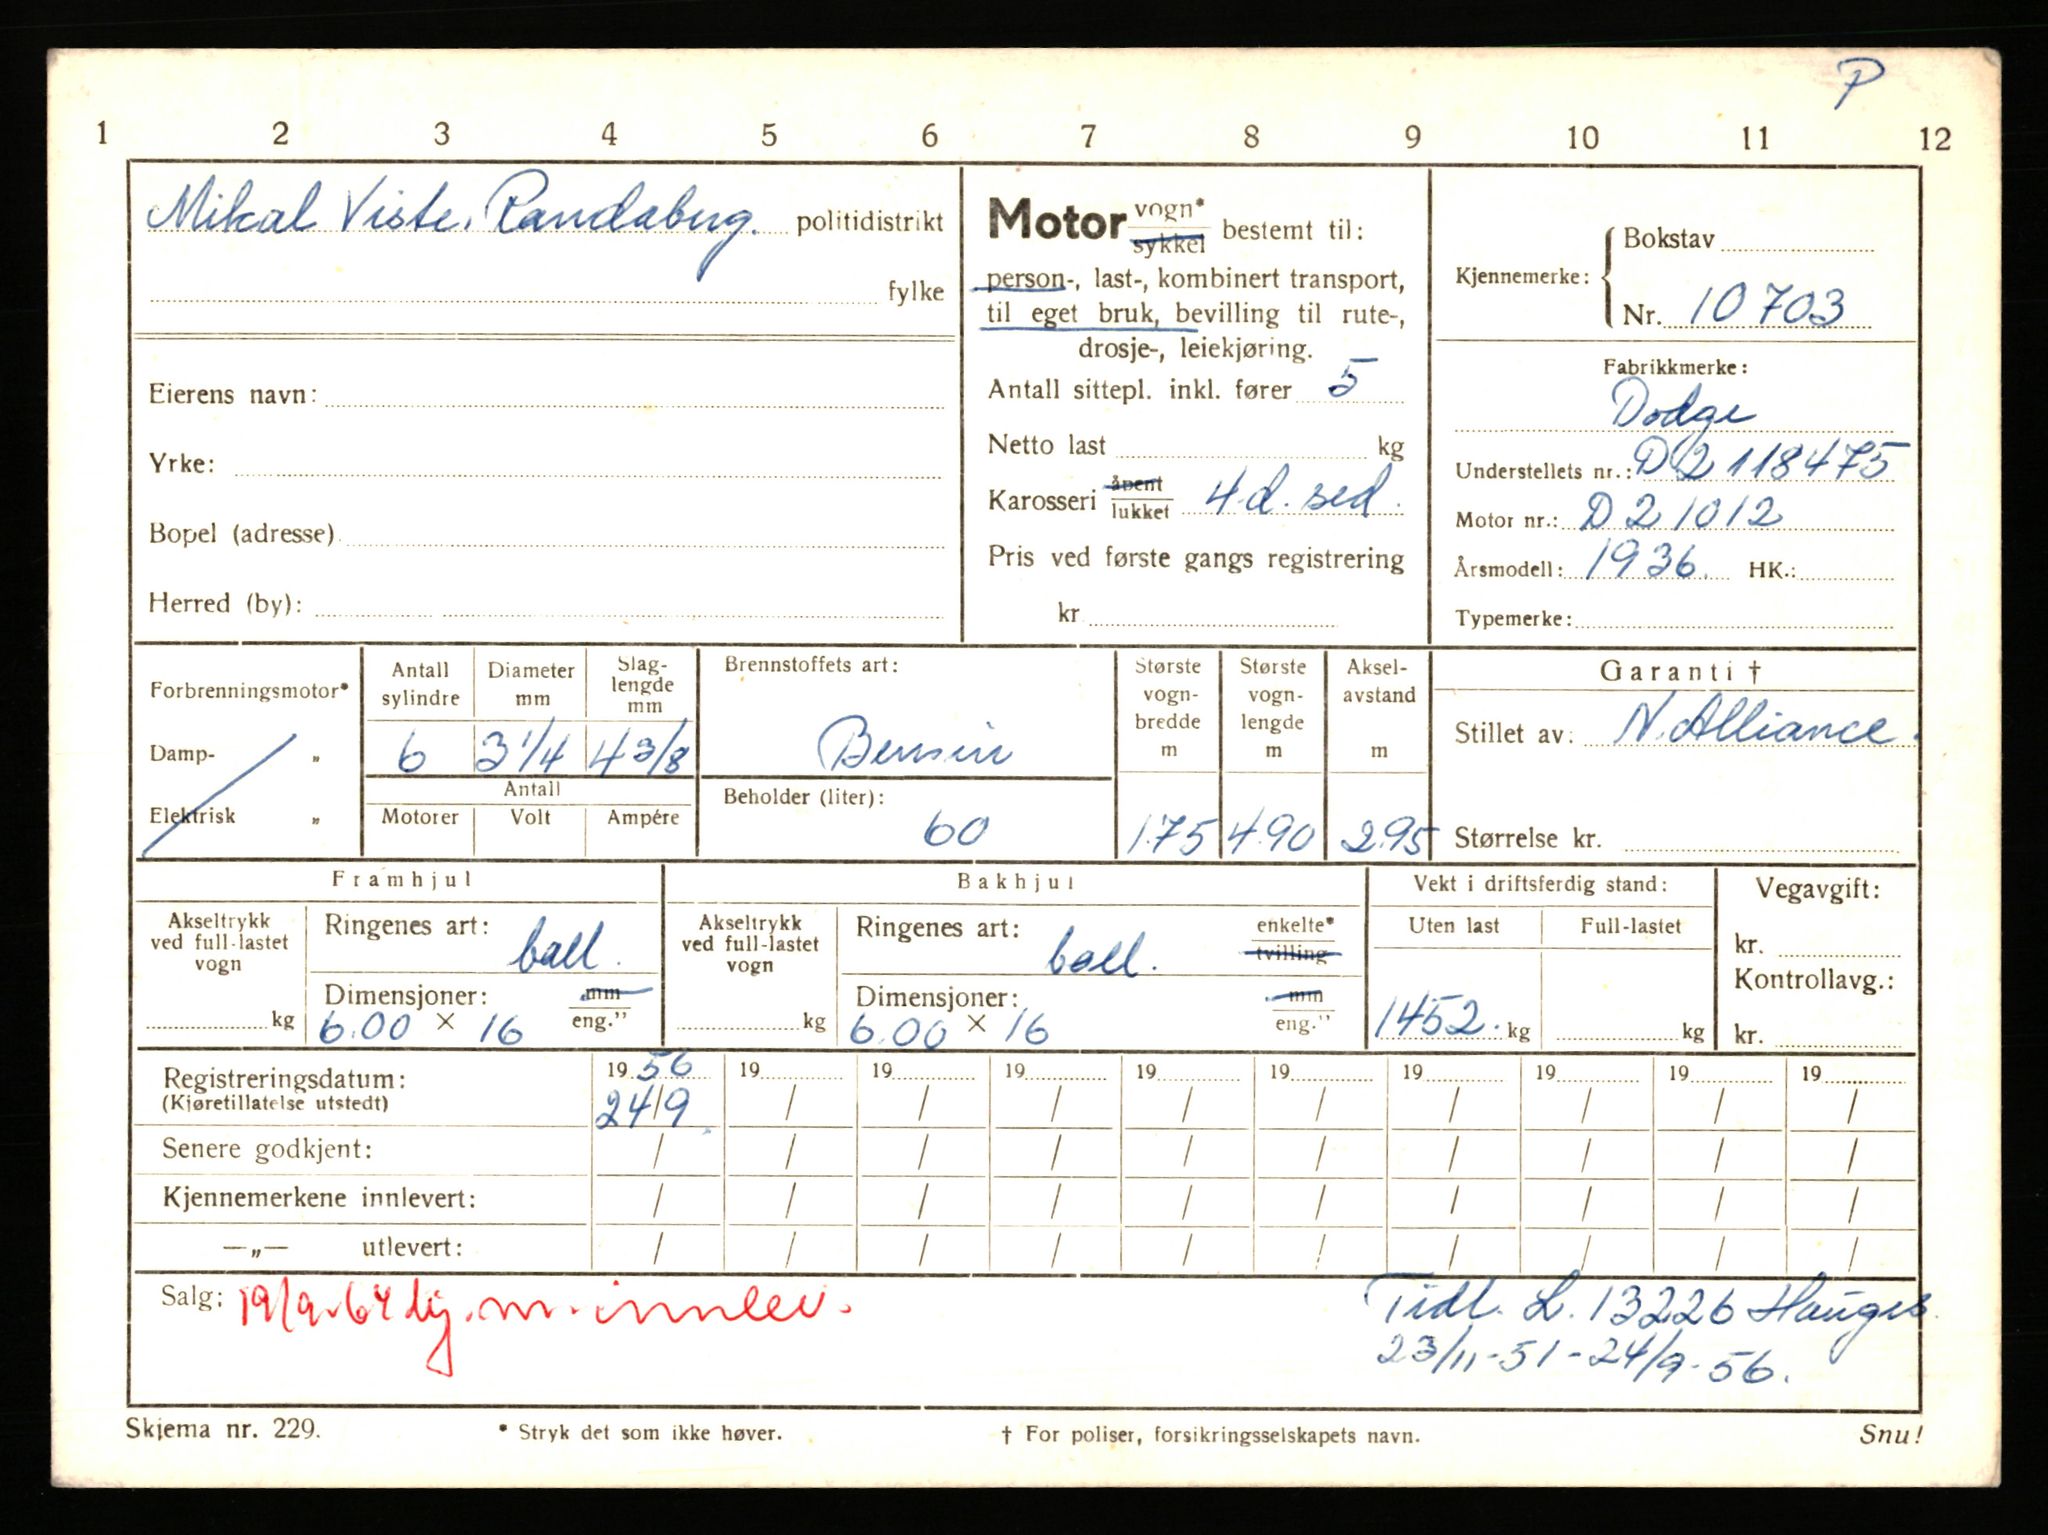 P
1 2 3 4 5 6 7 8 9 10 11 12
Mikal Viste, Randaberg. politidistrikt
fylke
Eierens navn:
Yrke:
Bopel (adresse)
Herred (by):
Motor vogn* sykkel bestemt til:
person-, last-, kombinert transport,
til eget bruk, bevilling til rute-,
drosje-, leiekjøring.
Antall sittepl. inkl. fører 5
Netto last kg
Karosseri åpent lukket 4.d. sed.
Pris ved første gangs registrering
kr
Kjennemerke: Bokstav
Nr. 10703
Fabrikkmerke:
Dodge
Understellets nr.: D2 118475
Motor nr.: D21012
Årsmodell: 1936. HK.:
Typemerke:
Forbrenningsmotor*
Damp- „
Elektrisk „
Antall sylindre
6
Diameter mm
3 1/4
Slag-lengde mm
4 3/8
Antall
Motorer Volt Ampére
Brennstoffets art:
Bensin
Beholder (liter):
60
Største vogn-bredde m
1.75
Største vogn-lengde m
4.90
Aksel-avstand m
2.95
Garanti †
Stillet av: N. Alliance.
Størrelse kr.
Framhjul
Akseltrykk ved full-lastet vogn
kg
Ringenes art:
ball.
Dimensjoner: mm eng."
6.00 × 16
Bakhjul
Akseltrykk ved full-lastet vogn
kg
Ringenes art: enkelte* tvilling
ball.
Dimensjoner: mm eng."
6.00 × 16
Vekt i driftsferdig stand:
Uten last Full-lastet
1452. kg kg
Vegavgift:
kr.
Kontrollavg.:
kr.
Registreringsdatum: 19 56 19 19 19 19 19 19 19 19 19
(Kjøretillatelse utstedt) 24/9. / / / / / / / / /
Senere godkjent: / / / / / / / / / /
Kjennemerkene innlevert: / / / / / / / / / /
—„— utlevert: / / / / / / / / / /
Salg: 19/9.64 kj. m. innlev.
Tidl. L. 13226 Hauges.
23/11-51-24/9-56.
Skjema nr. 229.
* Stryk det som ikke høver.
† For poliser, forsikringsselskapets navn.
Snu!